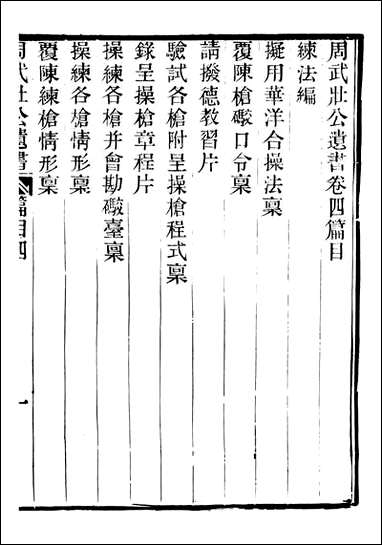 周武壯公遺書卷四篇目
練法編
擬用華洋合操法稟
覆陳槍礮口令稟
請撥德教習片
驗試各槍附呈操槍程式稟
錄呈操槍章程片
操練各槍并會勘礮臺稟
操練各槍情形稟
覆陳練槍情形稟
周武壯公遺書 篇目四 一